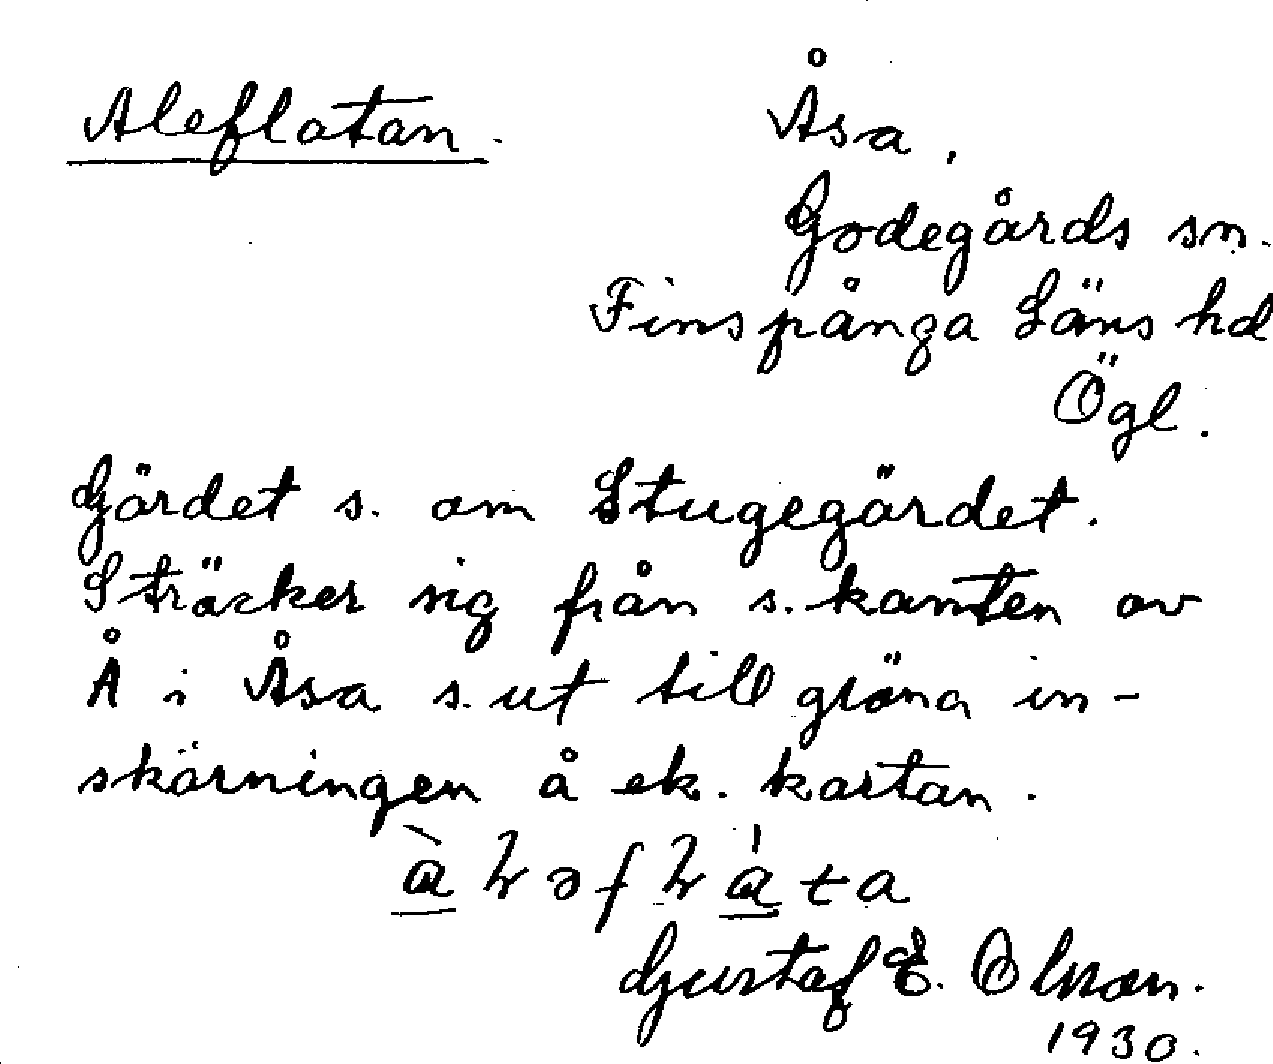 Aleflatan.
Åsa,
Godegårds sn.
Finspånga Läns hd
Ögl.
Gärdet s. om Stugegärdet.
Sträcker sig från s. kanten av
Å i Åsa s. ut till gröna in-
skärningen å ek. kartan.
Gustaf E. Olson.
1930.